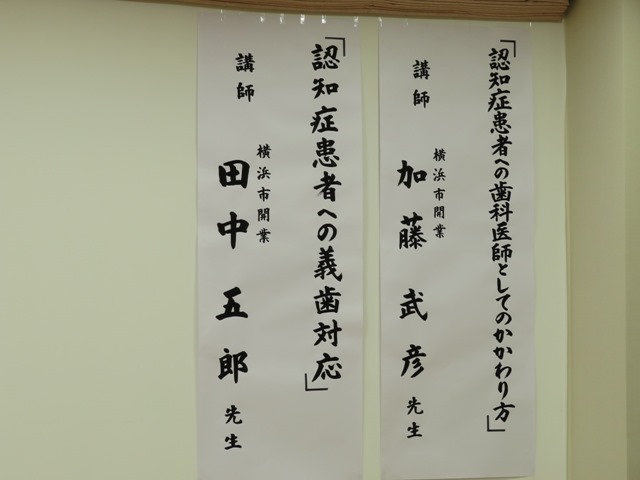 「認知症患者への歯科医師としてのかかわり方」
講師 横浜市開業 加藤武彦先生
「認知症患者への義歯対応」
講師 横浜市開業 田中五郎先生